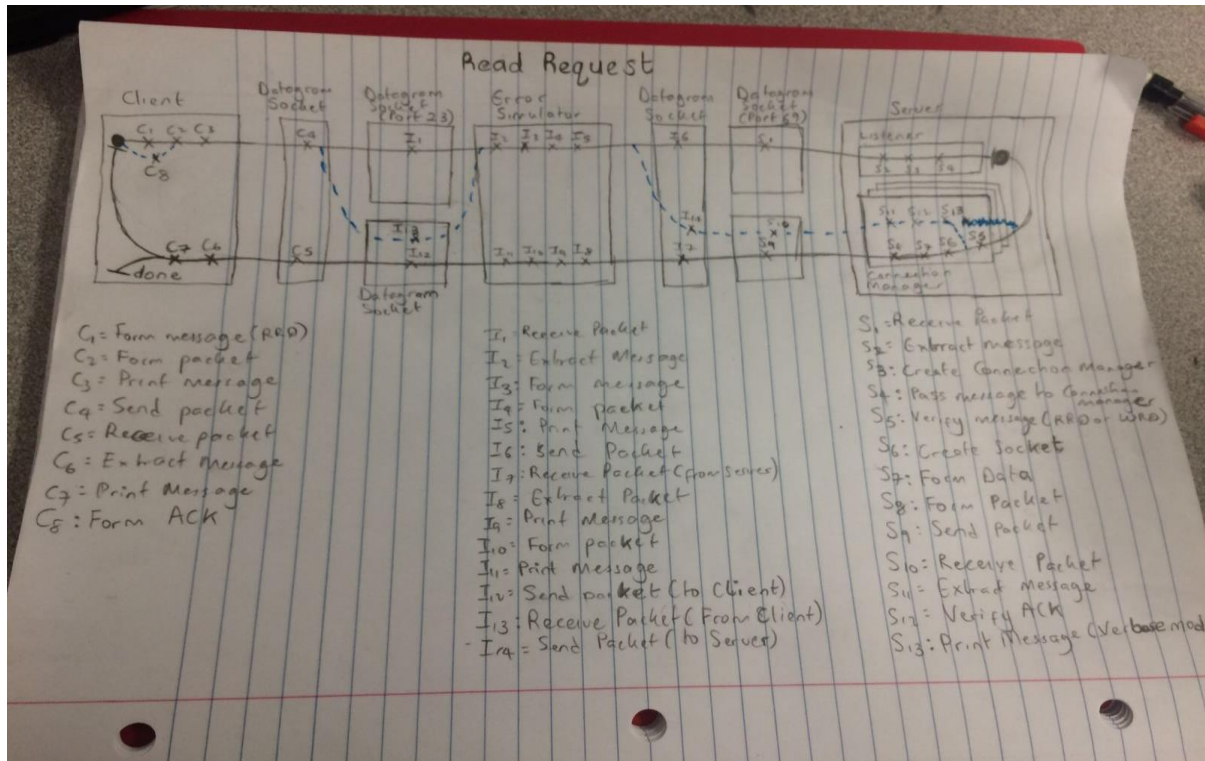 Read Request
Client
Datagram
Socket
Datagram
Socket
(Port 23)
Error
Simulator
Datagram
Socket
Datagram
Socket
(Port 69)
Server
Listener
C1 C2 C3
C8
C4
I1
I2 I3 I4 I5
I6
S1
S2 S3 S4
I13
I14
S10
S11 S12 S13
C7 C6
C5
I12
I11 I10 I9 I8
I7
S9
S8 S7 S6 S5
done
Datagram
Socket
Connection
Manager
C1= Form message (RRQ)
C2= Form packet
C3= Print message
C4= Send packet
C5= Receive packet
C6= Extract Message
C7= Print Message
C8: Form ACK
I1: Receive Packet
I2= Extract Message
I3: Form message
I4= Form packet
I5: Print Message
I6: Send Packet
I7: Receive Packet (from Server)
I8= Extract Packet
I9= Print Message
I10= Form packet
I11= Print Message
I12= Send packet (to Client)
I13: Receive Packet (From Client)
I14= Send Packet (to Server)
S1=Receive Packet
S2= Extract message
S3: Create Connection Manager
S4: Pass message to Connection
manager
S5: Verify message (RRQ or WRQ)
S6: Create Socket
S7: Form Data
S8: Form Packet
S9: Send Packet
S10: Receive Packet
S11= Extract Message
S12= Verify ACK
S13: Print Message (Verbase mod